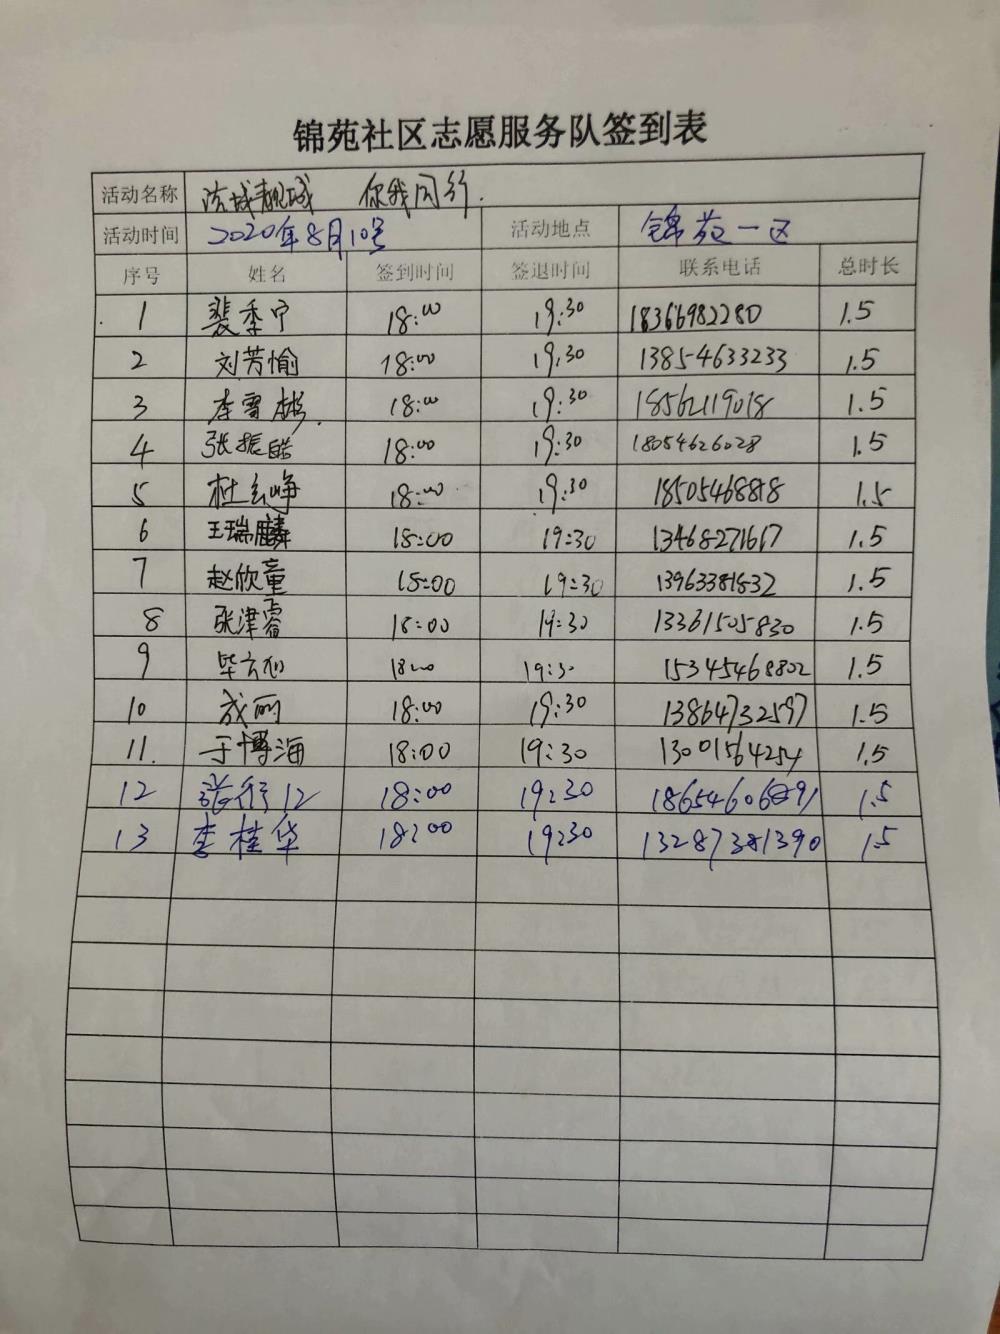 锦苑社区志愿服务队签到表
活动名称 你我同行.
活动时间 2020年8月10号 活动地点 锦苑一区
序号 姓名 签到时间 签退时间 联系电话 总时长
1 裴季宁 18:00 19:30 18366982280 1.5
2 刘芳愉 18:00 19:30 13854633233 1.5
3 李雪彬 18:00 19:30 18562119018 1.5
4 张振皓 18:00 19:30 18054626028 1.5
5 杜 峥 18:00 19:30 18505468818 1.5
6 王瑞麟 18:00 19:30 13468271617 1.5
7 赵欣童 18:00 19:30 13963381832 1.5
8 张津睿 18:00 19:30 13361505830 1.5
9 18:00 19:30 15345468802 1.5
10 成丽 18:00 19:30 13864732597 1.5
11. 于博海 18:00 19:30 13001564254 1.5
12 18:00 19:30 1.5
13 李桂华 18:00 19:30 13287381390 1.5